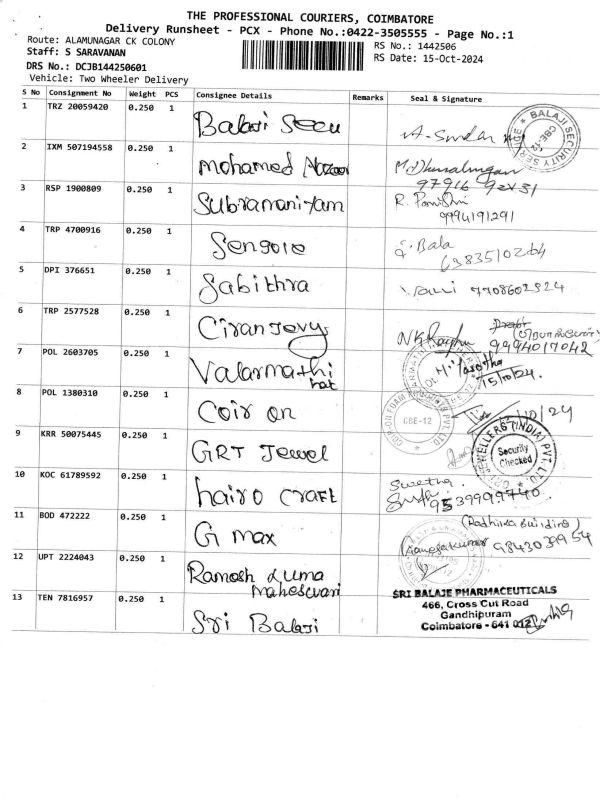 THE PROFESSIONAL COURIERS, COIMBATORE
Delivery Runsheet - PCX - Phone No.:0422-3505555 - Page No.:1
Route: ALAMUNAGAR CK COLONY
RS No.: 1442506
Staff: S SARAVANAN
RS Date: 15-Oct-2024
DRS No.: DCJB144250601
Vehicle: Two Wheeler Delivery
S No Consignment No Weight PCS Consignee Details Remarks Seal & Signature
1 TRZ 20059420 0.250 1 Balaji Secu
BALAJI SECURITY SERVICE CBE-12
2 IXM 507194558 0.250 1 Mohamed
3 RSP 1900809 0.250 1 Subramaniyam R.
9994191291
4 TRP 4700916 0.250 1 Sengole Bala
6383510264
5 DPI 376651 0.250 1 Sabithra 7708602324
6 TRP 2577528 0.250 1 Ciranjevy
9994017042
7 POL 2603705 0.250 1 Valarmathi
hat 15/10/24.
8 POL 1380310 0.250 1 Coir on CBE-12
9 KRR 50075445 0.250 1 GRT Jewel
JEWELLERS (INDIA) PVT. LTD. Security Checked
10 KOC 61789592 0.250 1 hairo craft Swetha
9539999740
11 BOD 472222 0.250 1 G max (Radhika building)
9843039954
12 UPT 2224043 0.250 1 Ramesh uma
maheswari
13 TEN 7816957 0.250 1 Sri Balaji
SRI BALAJE PHARMACEUTICALS
466, Cross Cut Road
Gandhipuram
Coimbatore - 641 012